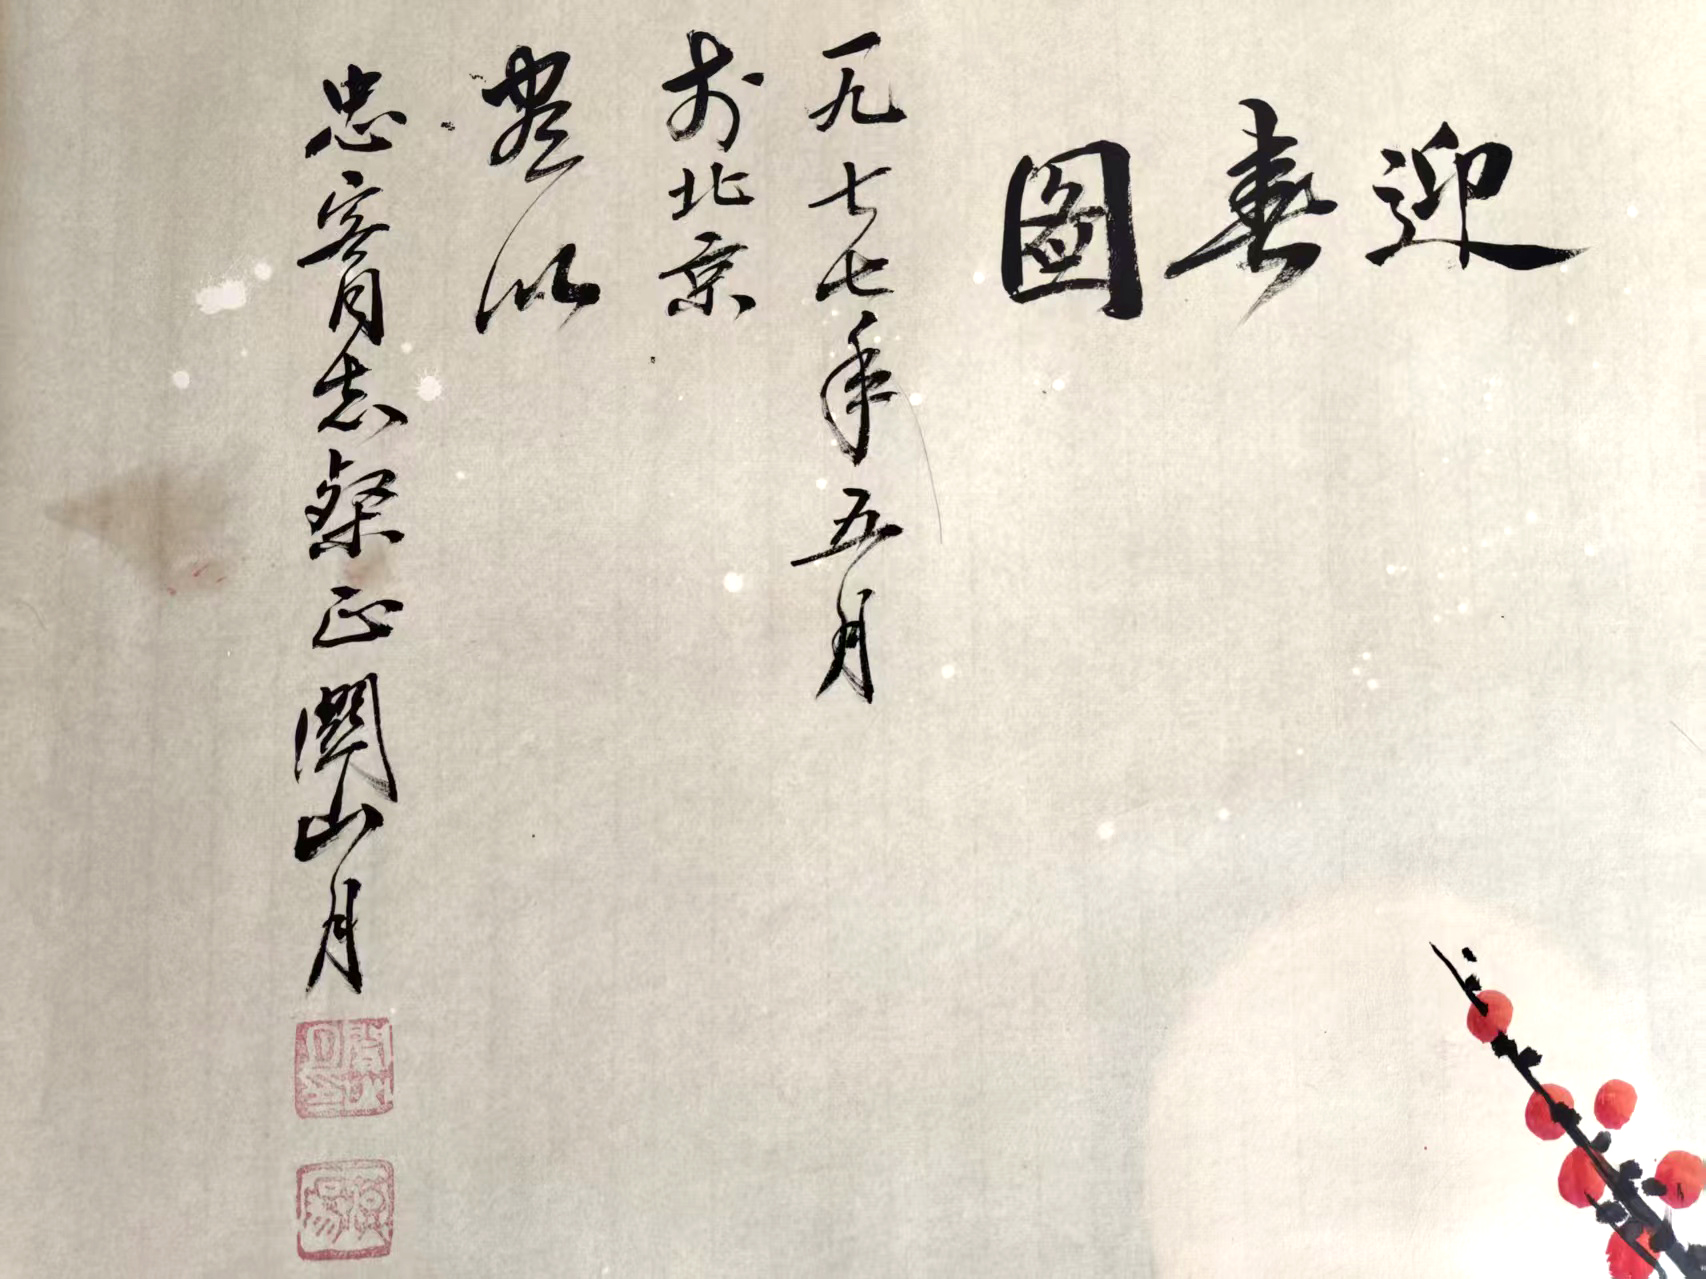 迎春圖
一九七七年五月
於北京
畫以
忠實同志粲正關山月